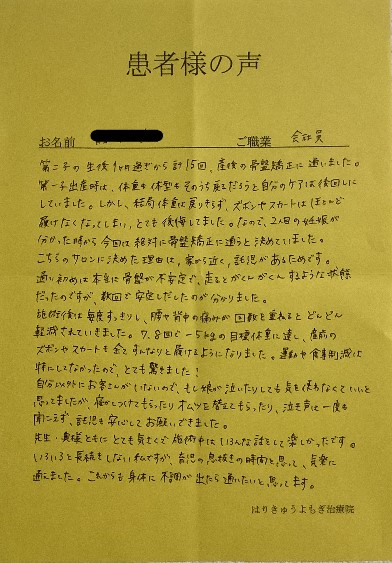 患者様の声
お名前 ご職業 会社員
第二子の生後1ヶ月過ぎから計15回、産後の骨盤矯正に通いました。
第一子出産時は、体重も体型もそのうち戻るだろうと自分のケアは後回しに
していました。しかし、結局体重は戻りきらず、ズボンやスカートはほとんど
履けなくなってしまい、とても後悔してました。なので、2人目の妊娠が
分かった時から今回は絶対に骨盤矯正に通うと決めていました。
こちらのサロンに決めた理由は、家から近く、託児があるためです。
通い初めは本当に骨盤が不安定で、走るとがくんがくんするような状態
だったのですが、数回で安定しだしたのが分かりました。
施術後は毎度すっきりし、腰や背中の痛みが回数を重ねるとどんどん
軽減されていきました。7、8回で-5kgの目標体重に達し、産前の
ズボンやスカートも全てすんなりと履けるようになりました。運動や食事制限は
特にしてなかったので、とても驚きました!
自分以外にお客さんがいないので、もし娘が泣いたりしても気を使わなくていいと
思ってましたが、寝かしつけてもらったりオムツを替えてもらったり、泣き声は一度も
聞こえず、託児も安心してお願いできました。
先生・奥様ともにとても気さくで施術中はいろんな話をして楽しかったです。
いろいろと長続きしない私ですが、育児の息抜きの時間と思って、気楽に
通えました。これからも身体に不調が出たら通いたいと思ってます。
はりきゅうよもぎ治療院